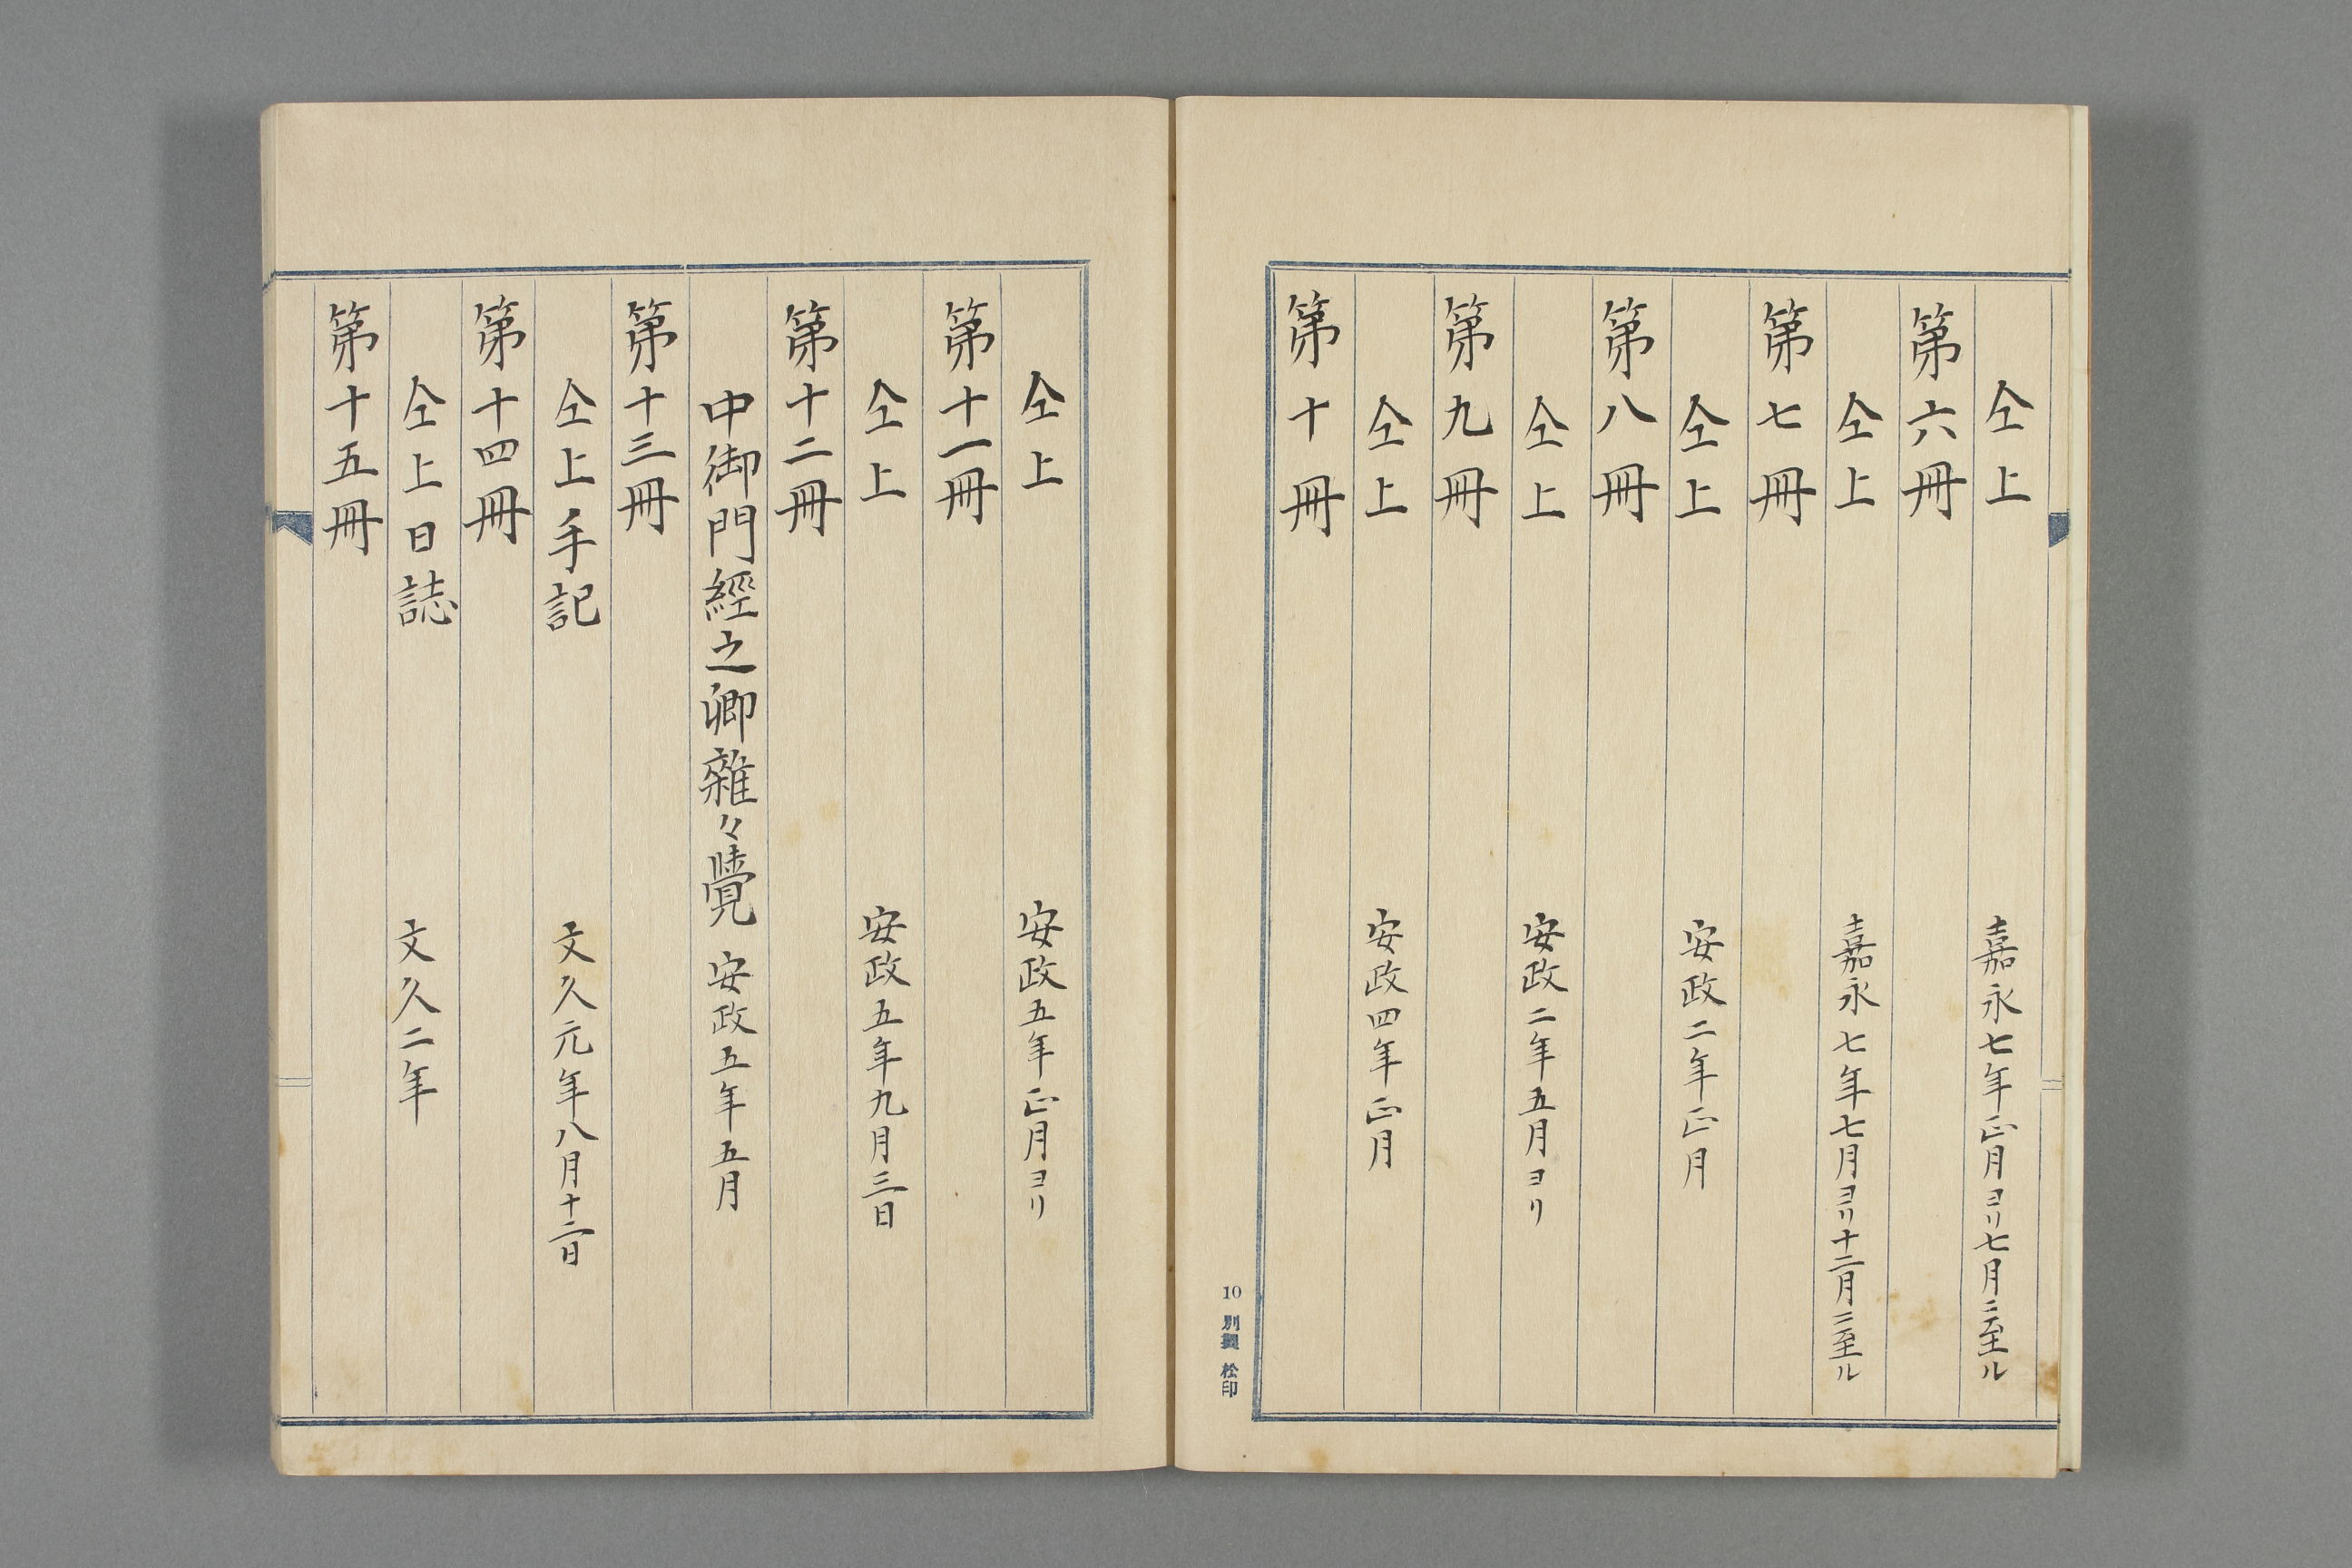 仝上 嘉永七年正月ヨリ七月ニ至ル
第六冊
仝上 嘉永七年七月ヨリ十二月ニ至ル
第七冊
仝上 安政二年正月
第八冊
仝上 安政二年五月ヨリ
第九冊
仝上 安政四年正月
第十冊
10 別製 松印
仝上 安政五年正月ヨリ
第十一冊
仝上 安政五年九月三日
第十二冊
中御門經之卿雜々覺 安政五年五月
第十三冊
仝上手記 文久元年八月十二日
第十四冊
仝上日誌 文久二年
第十五冊